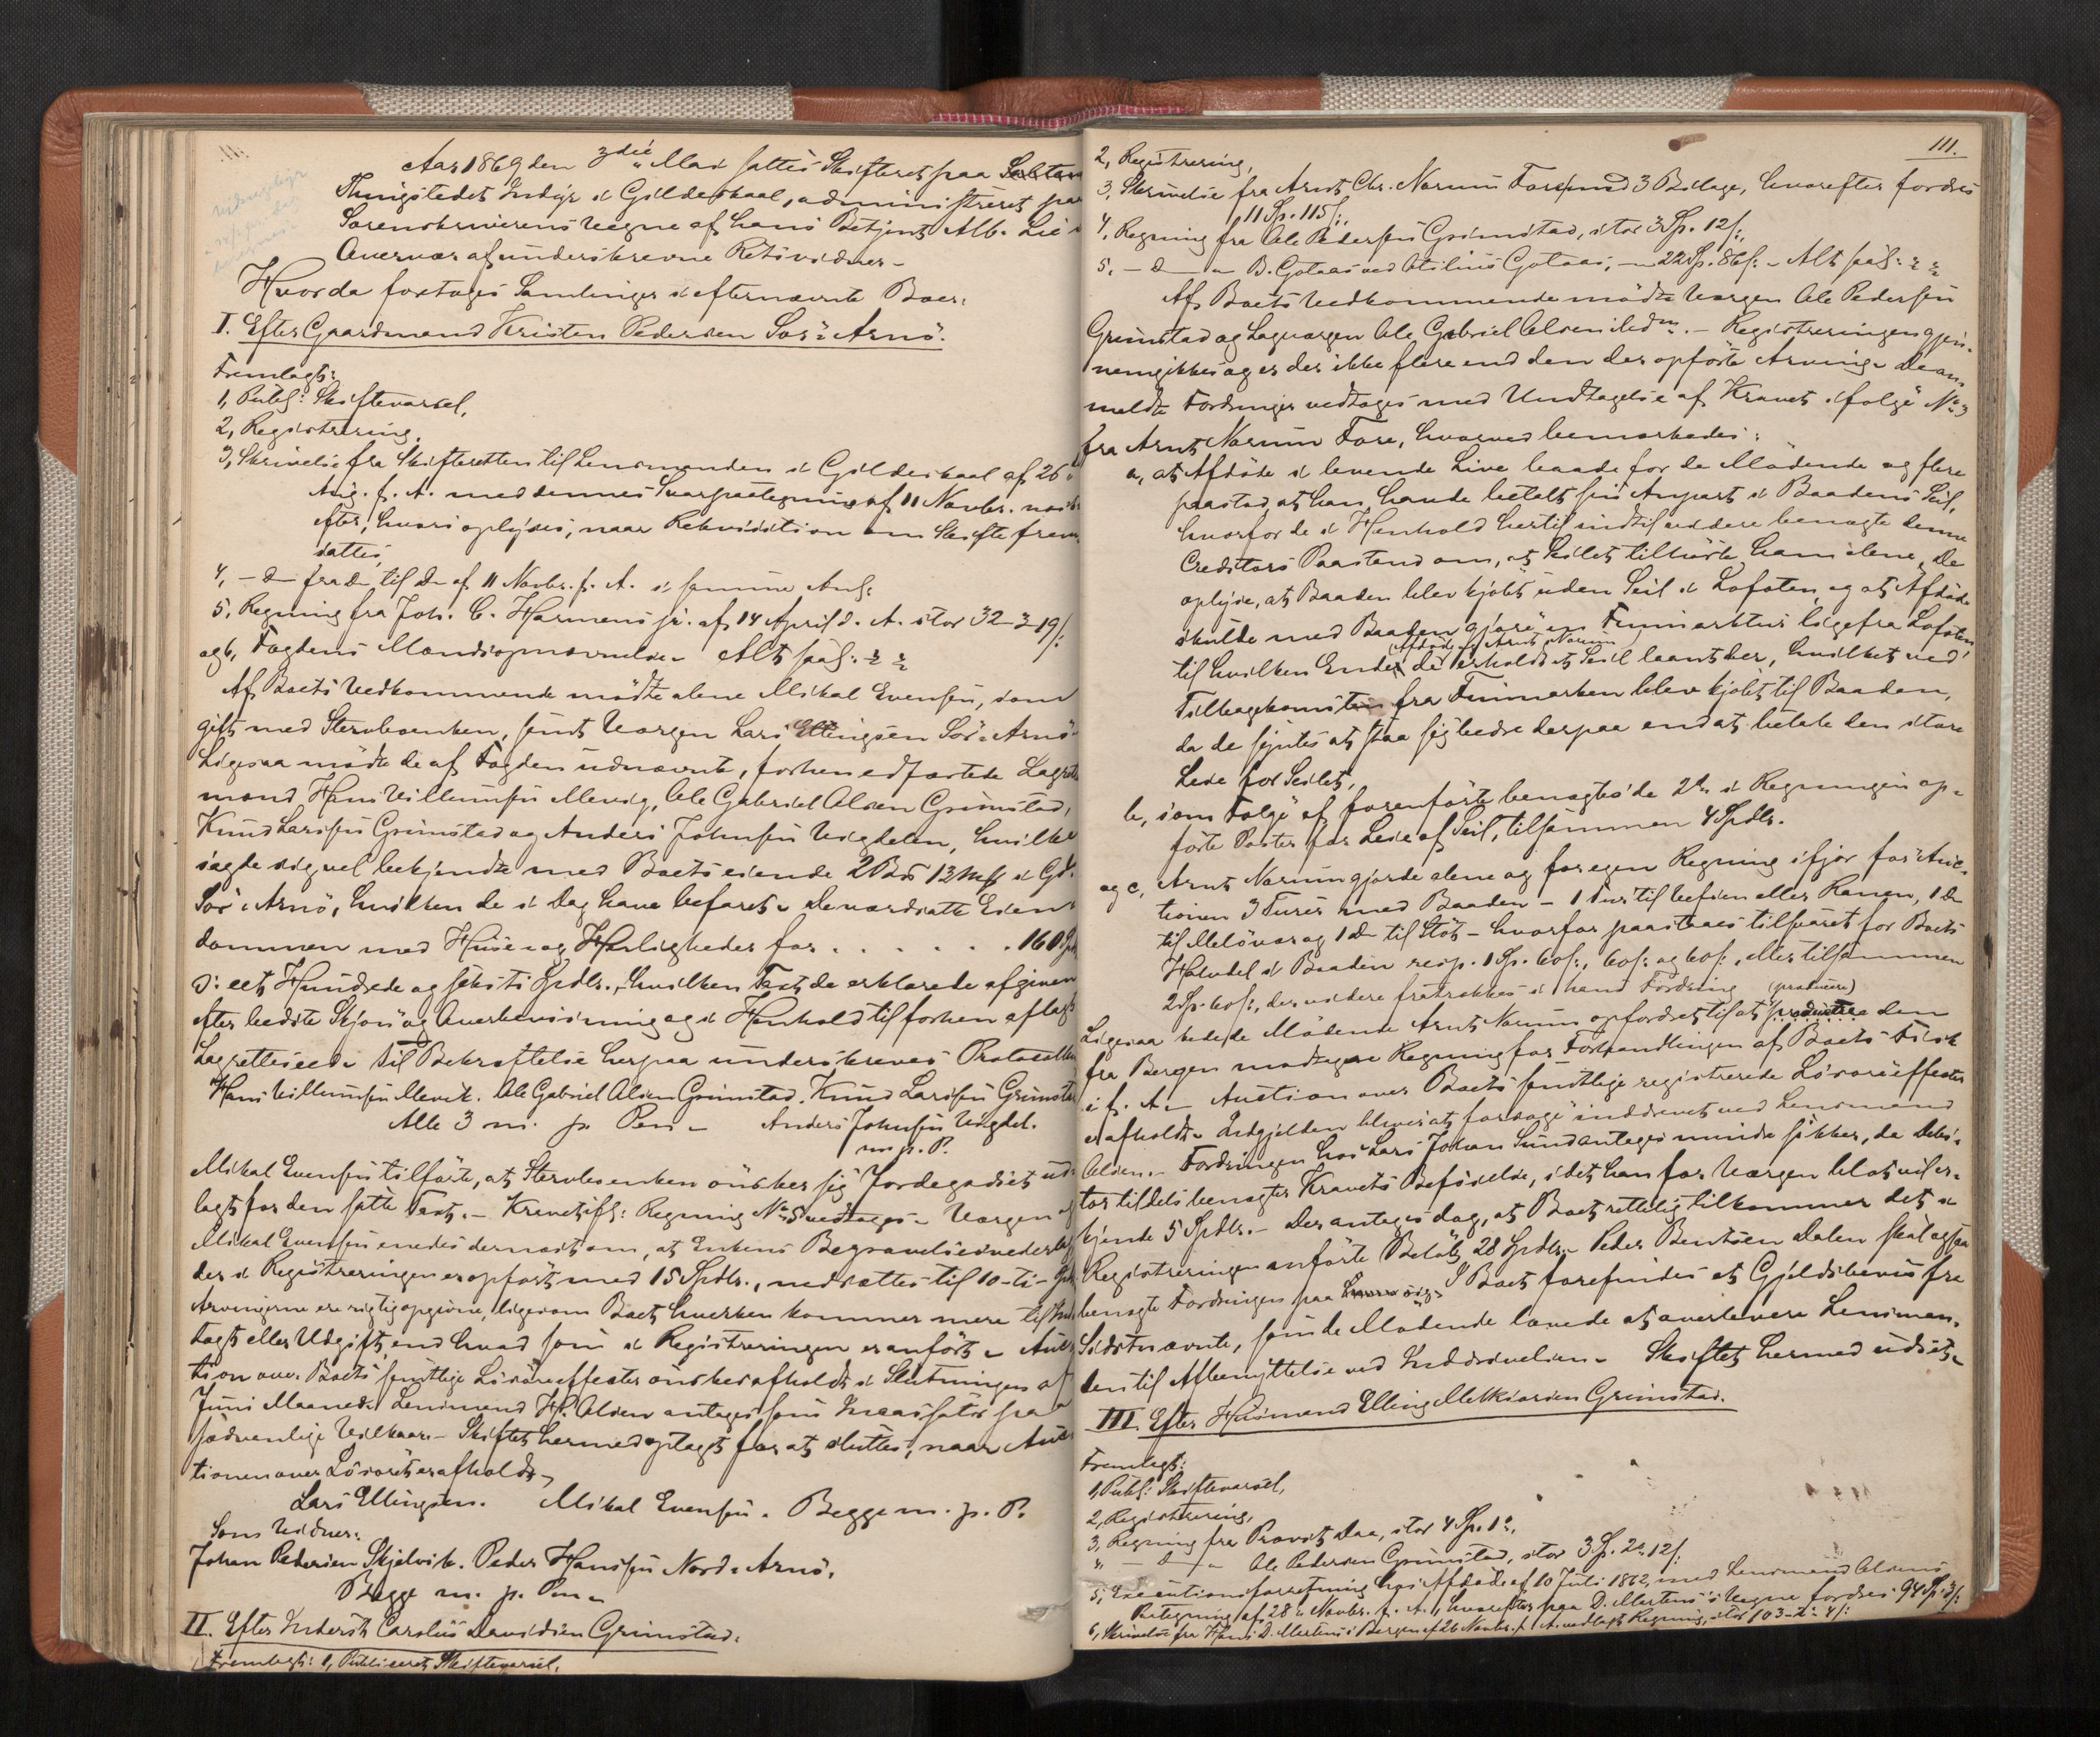 Aar 1869 den 3die Mai sattes Skifteret paa
Thingstedet Indyr i Gildeskaal, administreret paa
Sorenskriverens Vegne af hans Betjent Alb. Lie i
Overvær af underskrevne Retsvidner –
Hvorda foretoges Samlinger i efternævnte Boer:
I. Efter Gaardmand Kristen Pedersen Sør-Arnø.
Fremlagt:
1, Publ: Skiftevarsel,
2, Registrering,
3, Skrivelse fra Skifteretten til Lensmanden i Gildeskaal af 26
Aug. f. A. med dennes Svarpaategning af 11 Novbr. næst
efter, hvori oplyses, naar Rekvisition om Skifte frem-
sattes,
4, – D – fra Do til Do af 11 Novbr. f. A. i samme Anl:
5, Regning fra Joh. C. Harmens jr. af 14 April d. A. stor 32 – 3 – 19 /:
og 6, Fogdens Mandsopnævnelse – Alt saal:
Af Boets Vedkommende mødte alene Mikal Evensen, som
gift med Stervboenken, samt Værgen Lars Ellingsen Sør-Arnø
Ligesaa mødte de af Fogden udnævnte, forhen edfæstede Lagrettes-
mænd Hans Villumsen Mevig, Ole Gabriel Olsen Grimstad,
Knud Larsen Grimstad og Anders Johnsen Vigdelen, hvilke
sagde sig vel bekjendte med Boets eiende 2 Bd 12 mk i Gd.
Sør-Arnø, hvilken de i Dag have befaret. De værdsatte Eien-
dommen med Huse og Herligheder for . . . . . . 160 Spd
ɔ: eet Hundrede og seksti Spdlr., hvilken Taxt de erklærede afgiven
efter bedste Skjøn og Overbevisning og i Henhold til forhen aflagt
Lagretteseed. Til Bekræftelse herpaa underskreves Protocollen
Hans Villumsen Mevik. Ole Gabriel Olsen Grimstad. Knud Larsen Grimstad
Alle 3 m. p. Pen – Anders Johnsen Vigdel.
m. p. P.
Mikal Evensen tilførte, at Stervboenken ønsker sig Jordegodset ud-
lagt for den satte Taxt. – Kravet ifl: Regning No 5 vedtages. Værgen og
Mikal Evensen enedes dernæst om, at Enkens Begravelsesvederlag
der i Registreringen er opført med 15 Spdlr., nedsættes til 10 – ti – Spd
Arvingerne ere rigtig opgivne, ligesom Boet hverken kommer mere til Ind-
tægt eller Udgift, end hvad som i Registreringen er anført. Auc-
tion over Boets samtlige Løsøreeffecter ønskes afholdt i Slutningen af
Juni Maaned. Lensmand H. Olsen antages som Incassator paa
sædvanlige Vilkaar. – Skiftet hermed optaget for at sluttes, naar Auc-
tionen over Løsøret er afholdt –
Lars Ellingsen. Mikal Evensen. Begge m. p. P.
Som Vidner:
Johan Pedersen Skjelvik. Peder Hansen Nord-Arnø.
Begge m. p. Pen –
II. Efter Inderst Carolus Davidsen Grimstad.
Fremlagt: 1, Publiceret Skiftevarsel,
111.
2, Registrering,
3, Skrivelse fra Arnt Chr. Norum Fore med 3 Bilage, hvorefter fordres
11 Sp. 115 /:,
4, Regning fra Ole Pedersen Grimstad, stor 3 Sp. 12 /:,
5, – D – – B. Gotaas ved Otilius Gotaas, – 22 Sp. 86 /: – Alt saal:
Af Boets Vedkommende mødte Værgen Ole Pedersen
Grimstad og Lagværgen Ole Gabriel Olsen ibdm. – Registreringen gjen-
nemgikkes og er der ikke flere end den der opførte Arving. De an-
meldte Fordringer vedtages med Undtagelse af Kravet ifølge No 3
fra Arnt Norum Fore, hvorved bemærkedes:
a, at Afdøde i levende Live baade for de Mødende og flere
paastod, at han havde betalt sin Anpart i Baadens Seil,
hvorfor de i Henhold hertil indtil videre benægte denne
Creditors Paastand om, at Seilet tilhørte ham alene. De
oplyse, at Baaden blev kjøbt uden Seil i Lofoten, og at Afdøde
skulde med Baaden gjøre en Finmarktur ligefra Lofoten,
(Afdøde og Arnt Norum)
til hvilken Ende de erholdt et Seil laant her, hvilket ved
Tilbagekomsten fra Finmarken blev kjøbt til Baaden,
da de syntes at staa sig bedre derpaa end at betale den store
Leie for Seilet,
b, som Følge af foranførte benægtes de 2de i Regningen op-
førte Poster for Leie af Seil, tilsammen 4 Spdlr.
og c, Arnt Norum gjorde alene og for egen Regning ifjor før Auc-
tionen 3 Turer med Baaden – 1 Tur til Vefsen eller Ranen, 1 Do
til Meløvær og 1 Do til Støt – hvorfor paastaaes tilsvaret for Boets
Halvdel i Baaden resp. 1 Sp. 60 /:, 60 /: og 60 /:, eller tilsammen
2 Sp. 60 /:, der videre fratrækkes i hans Fordring (producere)
Ligesaa bede de Mødende Arnt Norum opfordret til at den
fra Bergen modtagne Regning for Forhandlingen af Boets Fisk
i f. A. – Auction over Boets samtlige registrerede Løsøreeffecter
er afholdt. Indgjelden bliver at forsøge inddrevet ved Lensmand
Olsen. – Fordringen hos Lars Johan Sund antages mindre sikker, da Debi-
tor tildels benægter Kravets Beføielse, idet han for Værgen blot vil er-
kjende 5 Spdlr. – Der antages dog, at Boet rettelig tilkommer det i
Registreringen anførte Beløb 28 Spdlr. – Peder Bentsen Dalen skal ogsaa
benægte Fordringen paa I Boet forefindes et Gjeldsbevis fra
Sidstnævnte, som de Mødende lovede at overlevere Lensman-
den til Afbenyttelse ved Inddrivelsen. – Skiftet hermed udsat –
III. Efter Husmand Elling Melkiorsen Grimstad.
Fremlagt:
1, Publ: Skiftevarsel,
2, Registrering,
3, Regning fra Provst Daa, stor 4 Sp. 1 o,
4, – D – – Ole Pedersen Grimstad, stor 3 Sp. 2 o 12 /:
5, Executionsforretning hos Afdøde af 10 Juli 1862, med Lensmand Olsens
Paategning af 28 Novbr. f. A., hvorefter paa D. Mertens's Vegne fordres 94 Sp. 3 /:
6, Skrivelse fra Hans D. Mertens i Bergen af 26 Novbr. f. A. vedlagt Regning, stor 103 – 2 – 4 /: